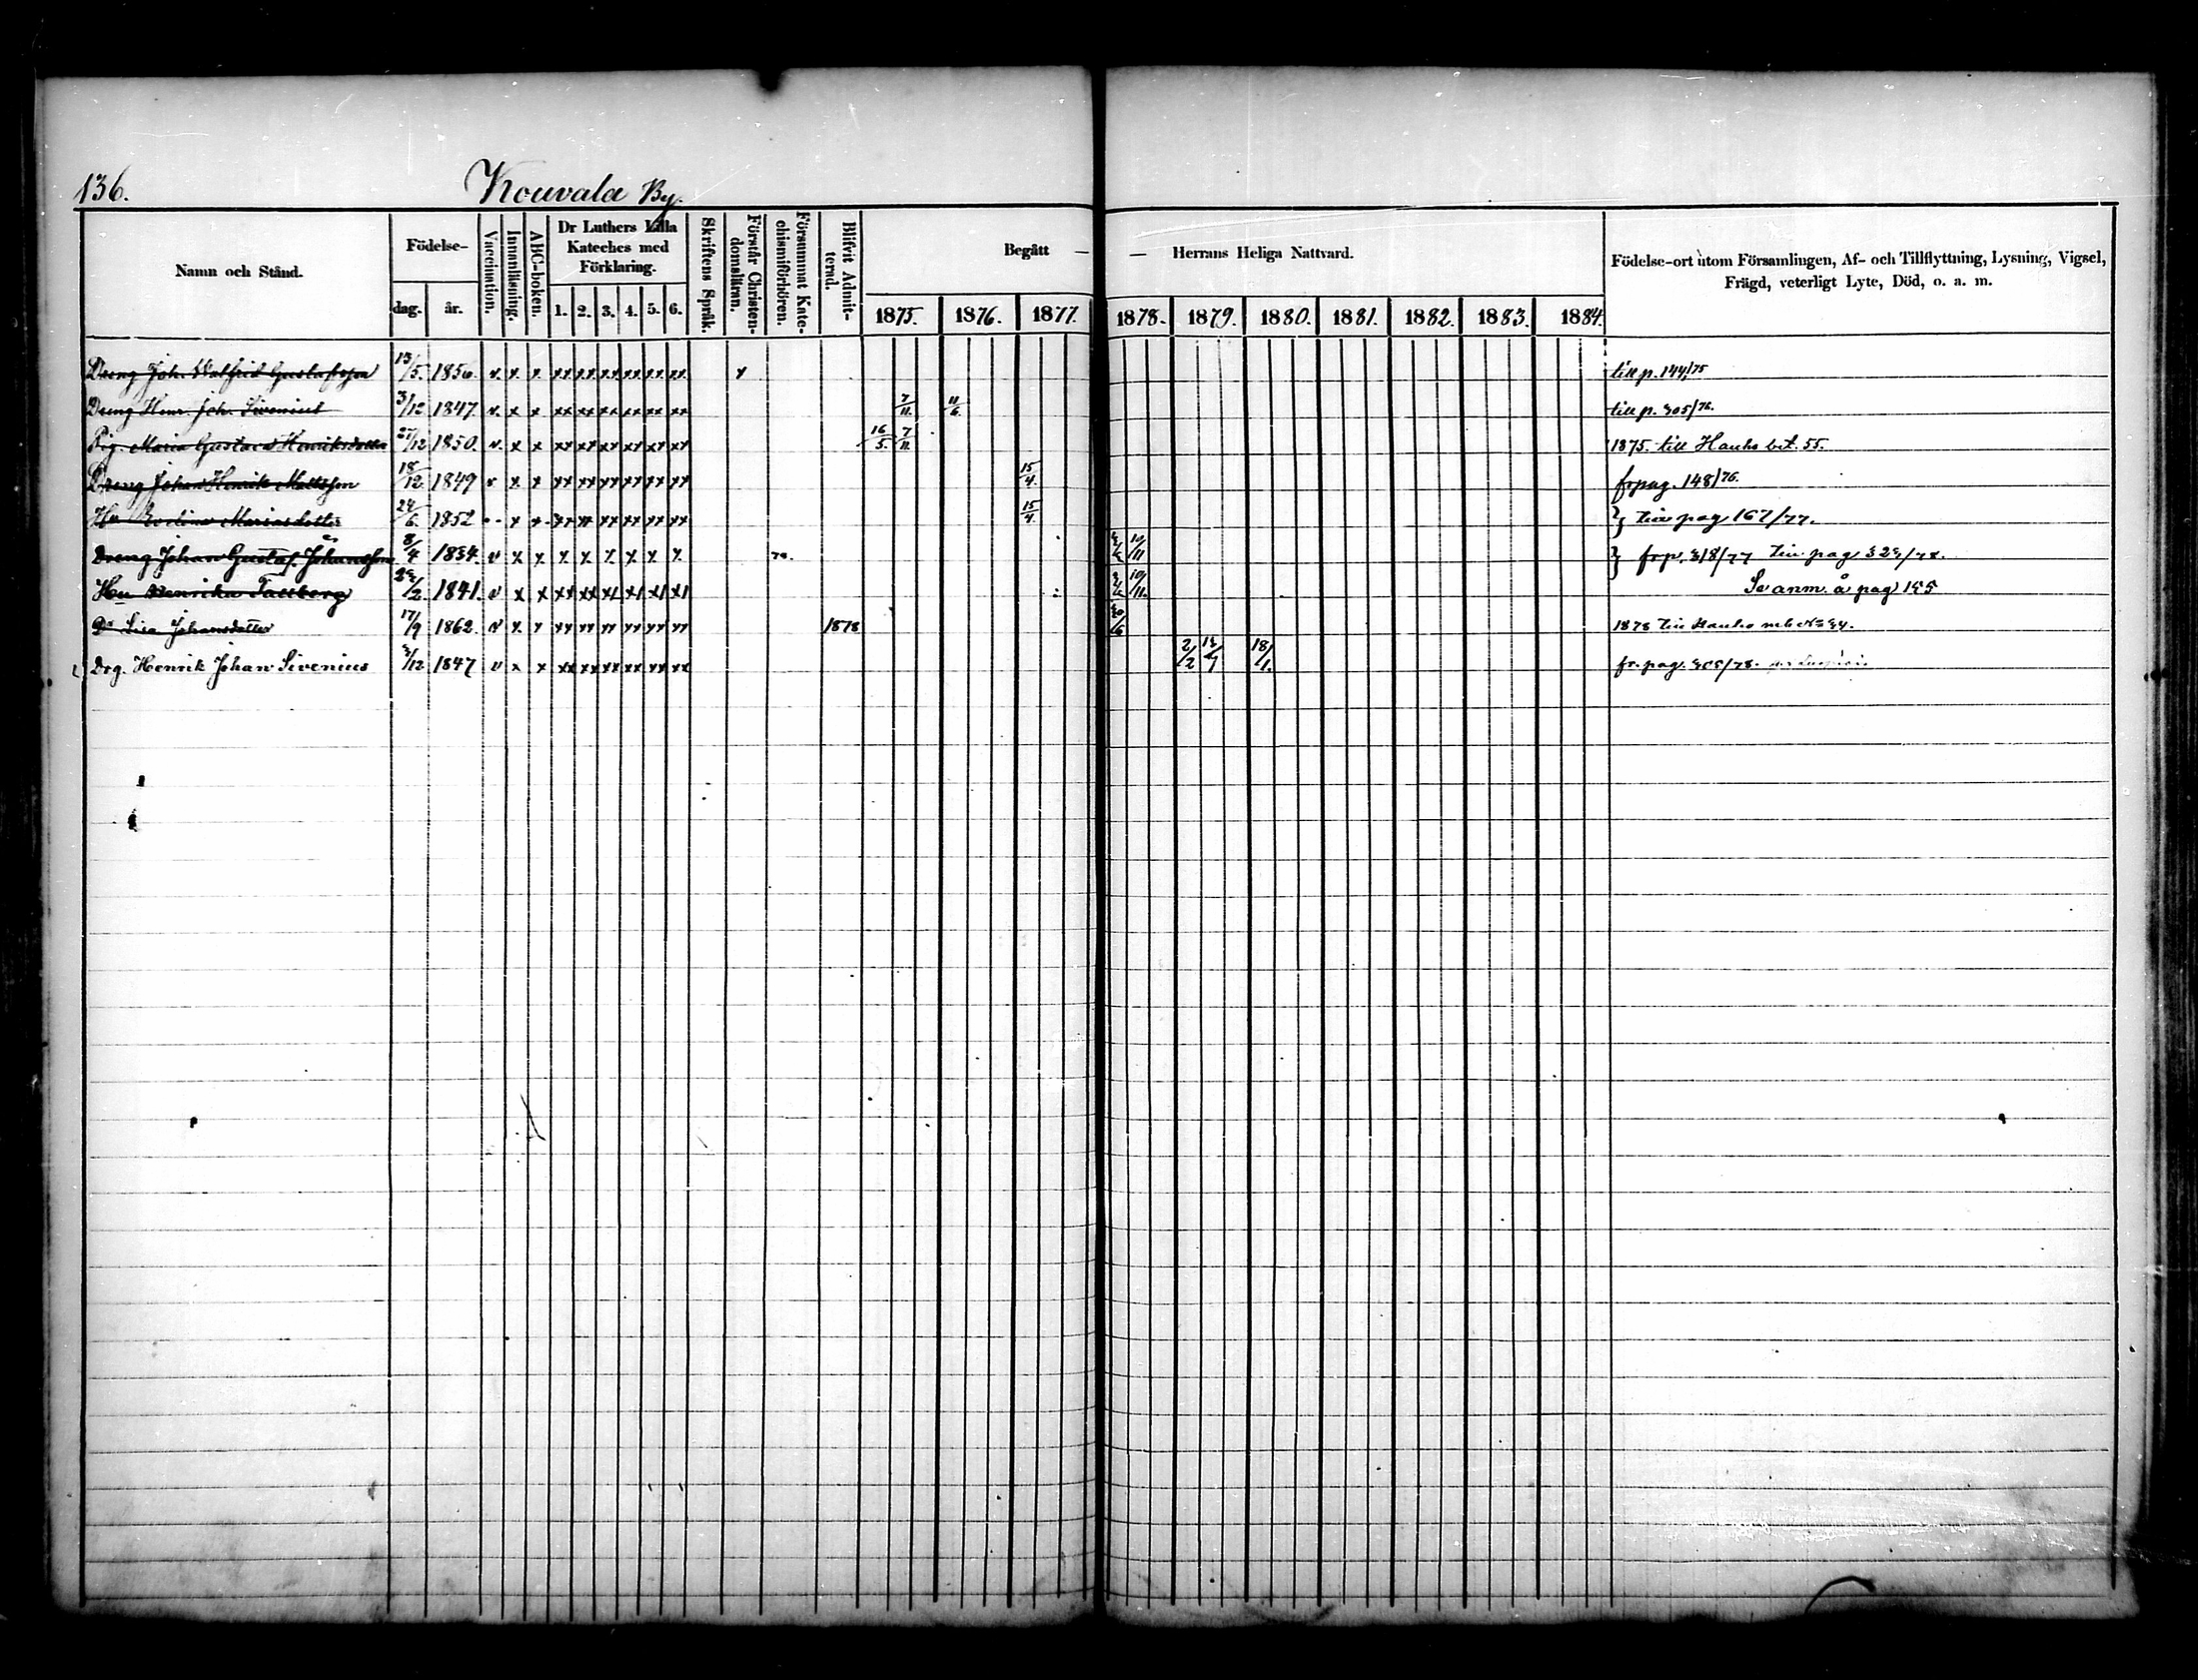 136.
Kouvala By.
Namn och Stånd.
Födelse-
dag. år.
Vaccination.
Innanläsning.
ABC-boken.
Dr Luthers Lilla Kateches med Förklaring.
1. 2. 3. 4. 5. 6.
Skriftens Språk.
Förstår Christendomsläran.
Försummat Katechismiförhören.
Blifvit Admitterad.
Begått — — Herrans Heliga Nattvard.
1875. 1876. 1877. 1878. 1879. 1880. 1881. 1882. 1883. 1884.
Födelse-ort utom Församlingen, Af- och Tillflyttning, Lysning, Vigsel, Frägd, veterligt Lyte, Död, o. a. m.
Dreng Joh. Walfrid Gustafsson 13/5. 1856. v. x x xx xx xx xx xx xx x till p. 144/75
Dreng Henr. Joh. Sivenius 3/12 1847. v. x x xx xx xx xx xx xx 7/11. 11/6. till p. 305/76.
Pig. Maria Gustava Henriksdotter 27/12 1850. v. x x xx xx xx xx xx xx 16/5. 7/11. 1875. till Hauho bet. 55.
Dreng Johan Henrik Mattsson 18/12 1849 v x x xx xx xx xx xx xx 15/4. fr pag. 148/76.
Hu Evelina Mariasdotter 24/6 1852 x x xx xx xx xx xx xx 15/4. } till pag 167/77.
Dreng Johan Gustaf Johansson 8/4 1834. v x x x x x x x x 10/11 } fr p. 318/77 till pag 323/78.
Hu Henrika Tallberg 1841. v x x xx xx xx xx xx xx 10/11. Se anm. å pag 155
Dr Lisa Johansdotter 17/9 1862. v x x xx xx xx xx xx xx 1878 1878 till Hauho
Drg. Henrik Johan Sivenius 3/12 1847 v x x xx xx xx xx xx xx 2/2 18/1. fr. pag. 305/78.